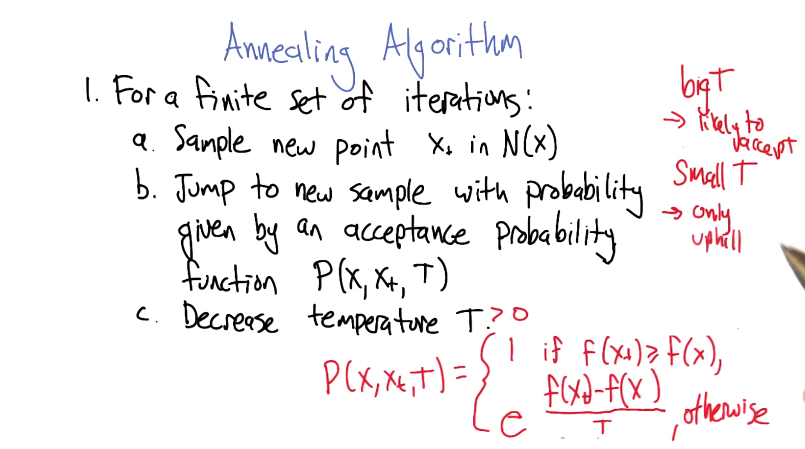 Annealing Algorithm
1. For a finite set of iterations:
a. Sample new point x₊ in N(x)
b. Jump to new sample with probability
given by an acceptance probability
function P(x, x₊, T)
c. Decrease temperature T. > 0
P(x, x₊, T) = { 1 if f(x₊) ≥ f(x),
e^((f(x₊) - f(x)) / T), otherwise
big T
→ likely to
accept
Small T
→ only
uphill